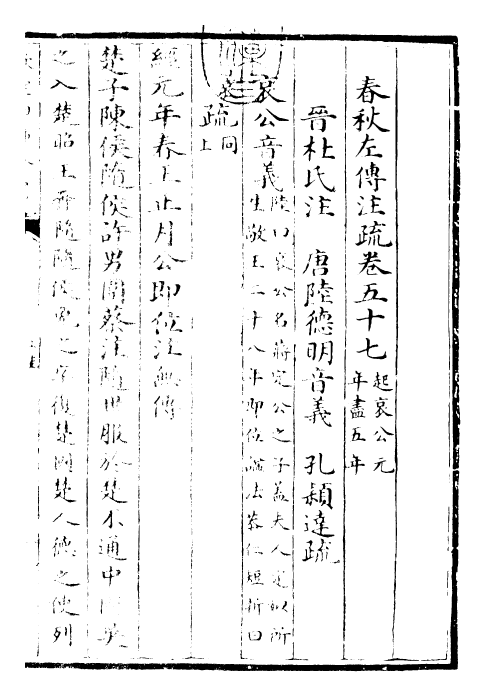 春秋左傳注疏卷五十七起哀公元年盡五年
晉杜氏注 唐陸德明音義 孔穎達疏
哀公音義陸曰哀公名蔣定公之子蓋夫人定姒所生敬王二十八年即位諡法恭仁短折曰哀
疏同上
經元年春王正月公即位注無傳
楚子陳侯隨侯許男圍蔡注隨世服於楚不通中國吳
之入楚昭王奔隨隨人免之卒復楚國楚人德之使列